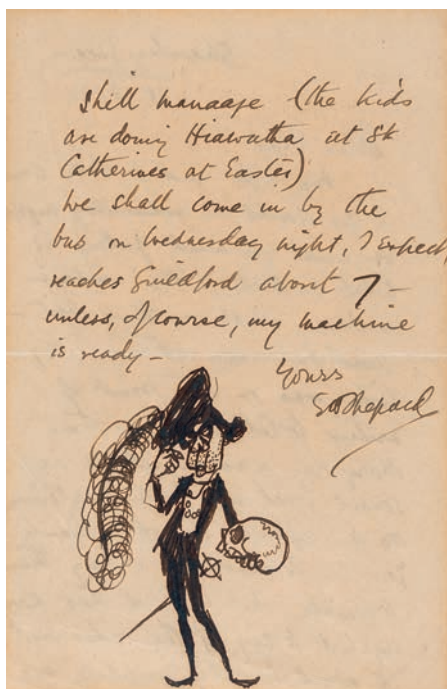 shill manage (the kids
are doing Hiawatha at St
Catherines at Easter)
We shall come in by the
bus on Wednesday night, I expect,
reaches Guildford about 7 –
unless, of course, my machine
is ready –
Yours
EHShepard